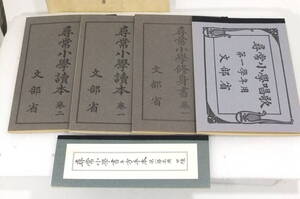 尋常小學讀本
卷二
文部省
尋常小學讀本
卷一
文部省
尋常小學修身書
卷一
文部省
尋常小學唱歌
第一學年用
文部省
尋常小學書キ方手本